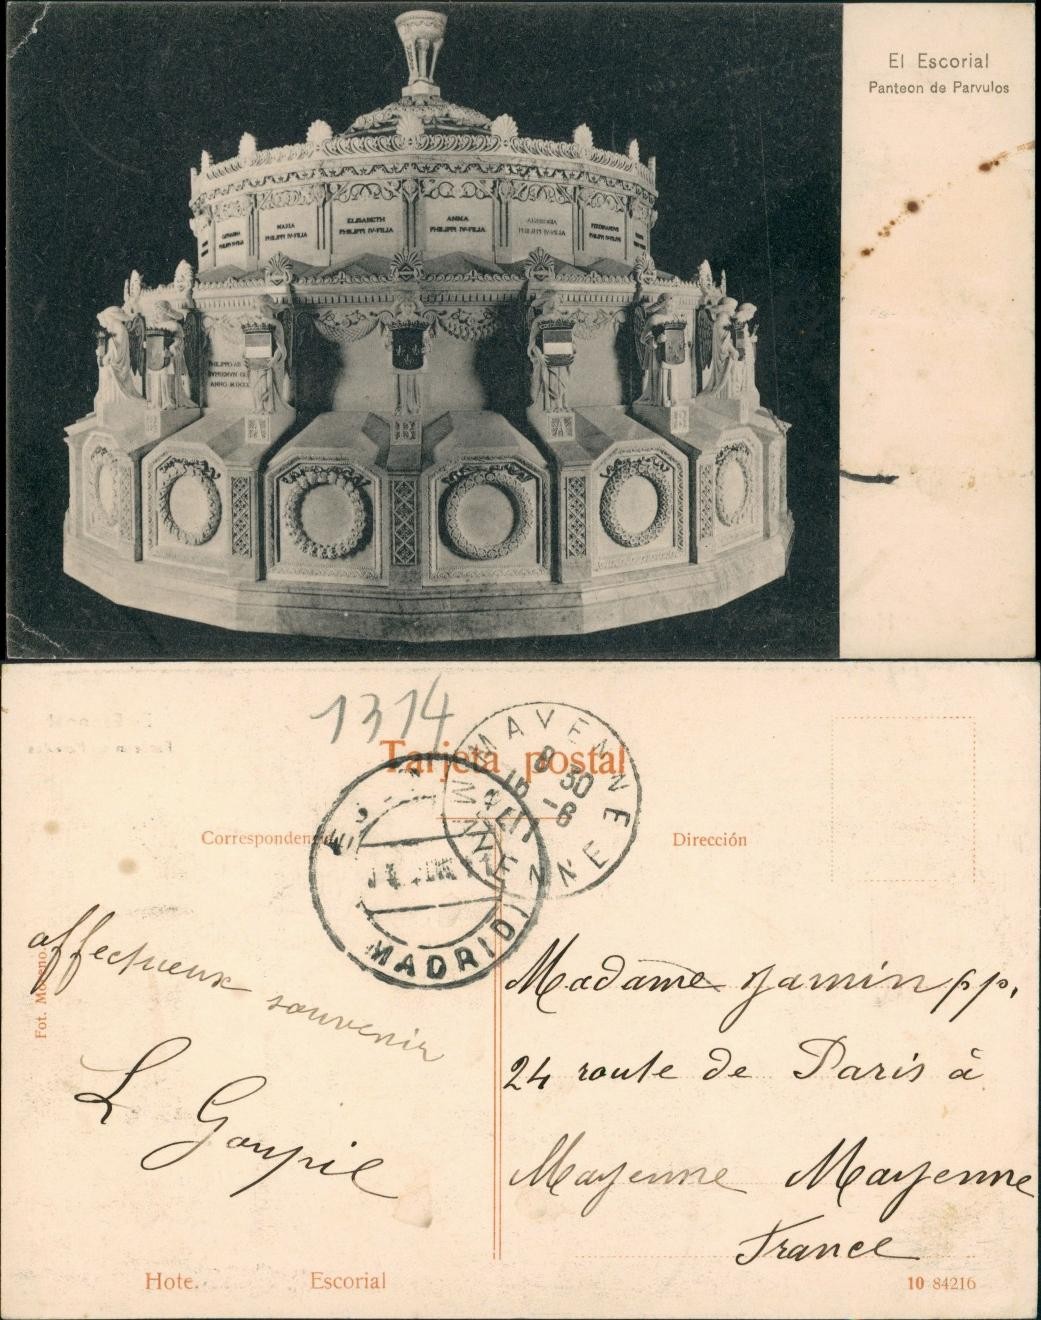 El Escorial
Panteon de Parvulos
MARIA
PHILIPPI IV-FILIA
ELISABETH
PHILIPPI IV-FILIA
ANNA
PHILIPPI IV-FILIA
AMBROSIA
PHILIPPI IV-FILIA
PHILIPPI IV-FILIA
1374
Tarjeta postal
MAYENNE
8 30
16 -6
MAYENNE
MADRID
Dirección
affectueux
souvenir
L Goupil
Madame Jamin pp.
24 route de Paris à
Mayenne Mayenne
France
Hote. Escorial
10 84216